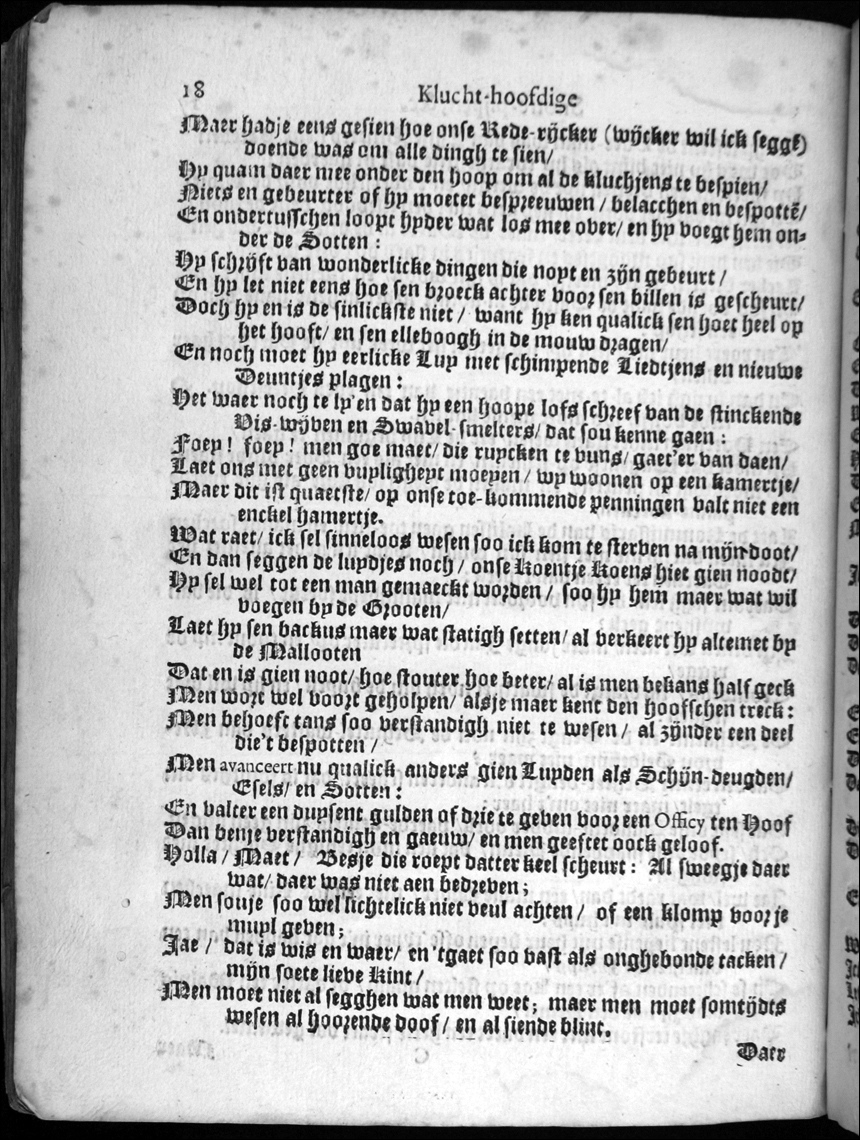 18 Klucht-hoofdige
Maer hadje eens gesien hoe onse Rede-rijcker (wijcker wil ick seggē)
doende was om alle dingh te sien/
Hy quam daer mee onder den hoop om al de kluchjens te bespien/
Niets en gebeurter of hy moetet bespreeuwen / belacchen en bespottē/
En ondertusschen loopt hyder wat los mee over/ en hy voegt hem on-
der de Sotten :
Hy schrijft van wonderlicke dingen die noyt en zijn gebeurt /
En hy let niet eens hoe sen broeck achter voor sen billen is gescheurt/
Doch hy en is de sinlickste niet / want hy ken qualick sen hoet heel op
het hooft/ en sen elleboogh in de mouw dragen/
En noch moet hy eerlicke Luy met schimpende Liedtjens en nieuwe
Deuntjes plagen :
Het waer noch te ly'en dat hy een hoope lofs schreef van de stinckende
Vis-wijven en Swavel-smelters/ dat sou kenne gaen :
Foey ! foey ! men goe maet/ die ruycken te vuns/ gaet'er van daen/
Laet ons met geen vuyligheyt moeyen / wy woonen op een kamertje/
Maer dit ist quaetste/ op onse toe-kommende penningen valt niet een
enckel hamertje.
Wat raet/ ick sel sinneloos wesen soo ick kom te sterben na mijn doot/
En dan seggen de luydjes noch / onse Koentje Koens hiet gien noodt/
Hy sel wel tot een man gemaeckt worden / soo hy hem maer wat wil
voegen by de Grooten/
Laet hy sen backus maer wat statigh setten/ al verkeert hy altemet by
de Mallooten
Dat en is gien noot/ hoe stouter hoe beter/ al is men bekans half geck
Men wort wel voort geholpen/ alsje maer kent den hoofschen treck :
Men behoeft tans soo verstandigh niet te wesen / al zijnder een deel
die't bespotten /
Men avanceert nu qualick anders gien Luyden als Schijn-deugden/
Esels/ en Sotten :
En valter een duysent gulden of drie te geven voor een Officy ten Hoof
Dan benje verstandigh en gaeuw/ en men geeftet oock geloof.
Holla / Maet / Besje die roept datter keel scheurt : Al sweegje daer
wat/ daer was niet aen bedreven ;
Men souje soo wel lichtelick niet veul achten / of een klomp voor je
muyl geven ;
Jae / dat is wis en waer/ en 'tgaet soo vast als onghebonde tacken /
mijn soete lieve Kint /
Men moet niet al segghen wat men weet ; maer men moet somtijdts
wesen al hoorende doof / en al siende blint.
Daer